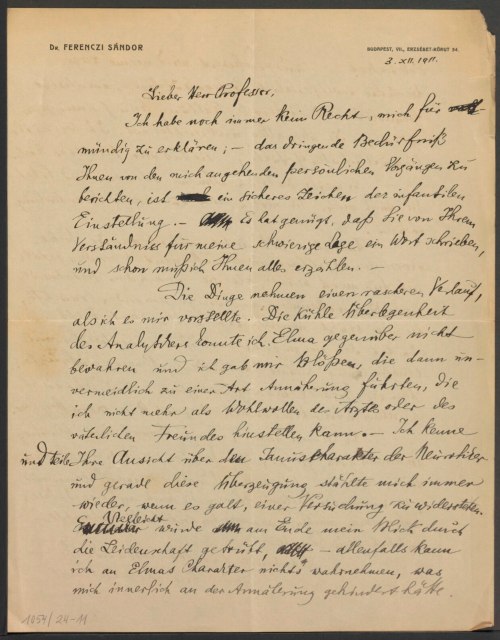 Dr. FERENCZI SÁNDOR
BUDAPEST, VII., ERZSÉBET-KÖRUT 54.
3. XII. 1911.
Lieber Herr Professor,
Ich habe noch immer kein Recht, mich für
mündig zu erklären; – das dringende Bedürfniß
Ihnen von den mich angehenden persönlichen Vorgängen zu
berichten, ist ein sicheres Zeichen der infantilen
Einstellung. – Es hat genügt, daß Sie von Ihrem
Verständniss für meine schwierige Lage ein Wort schrieben,
und schon muß ich Ihnen alles erzählen. –
Die Dinge nehmen einen rascheren Verlauf,
als ich es mir vorstellte. Die kühle Überlegenheit
des Analytikers konnte ich Elma gegenüber nicht
bewahren und ich gab mir Blößen, die dann un-
vermeidlich zu einer Art Annäherung führten, die
ich nicht mehr als Wohlwollen des Arztes oder des
väterlichen Freundes hinstellen kann. – Ich kenne
und teile Ihre Ansicht über den charakter der Neurotiker
und gerade diese Überzeugung stählte mich immer
wieder, wenn es galt, einer Versuchung zu widerstehen.
Vielleicht wurde am Ende mein Blick durch
die Leidenschaft getrübt, – allenfalls kann
ich an Elmas Charakter nichts wahrnehmen, was
mich innerlich an der Annäherung gehindert hätte.
1054/24-11